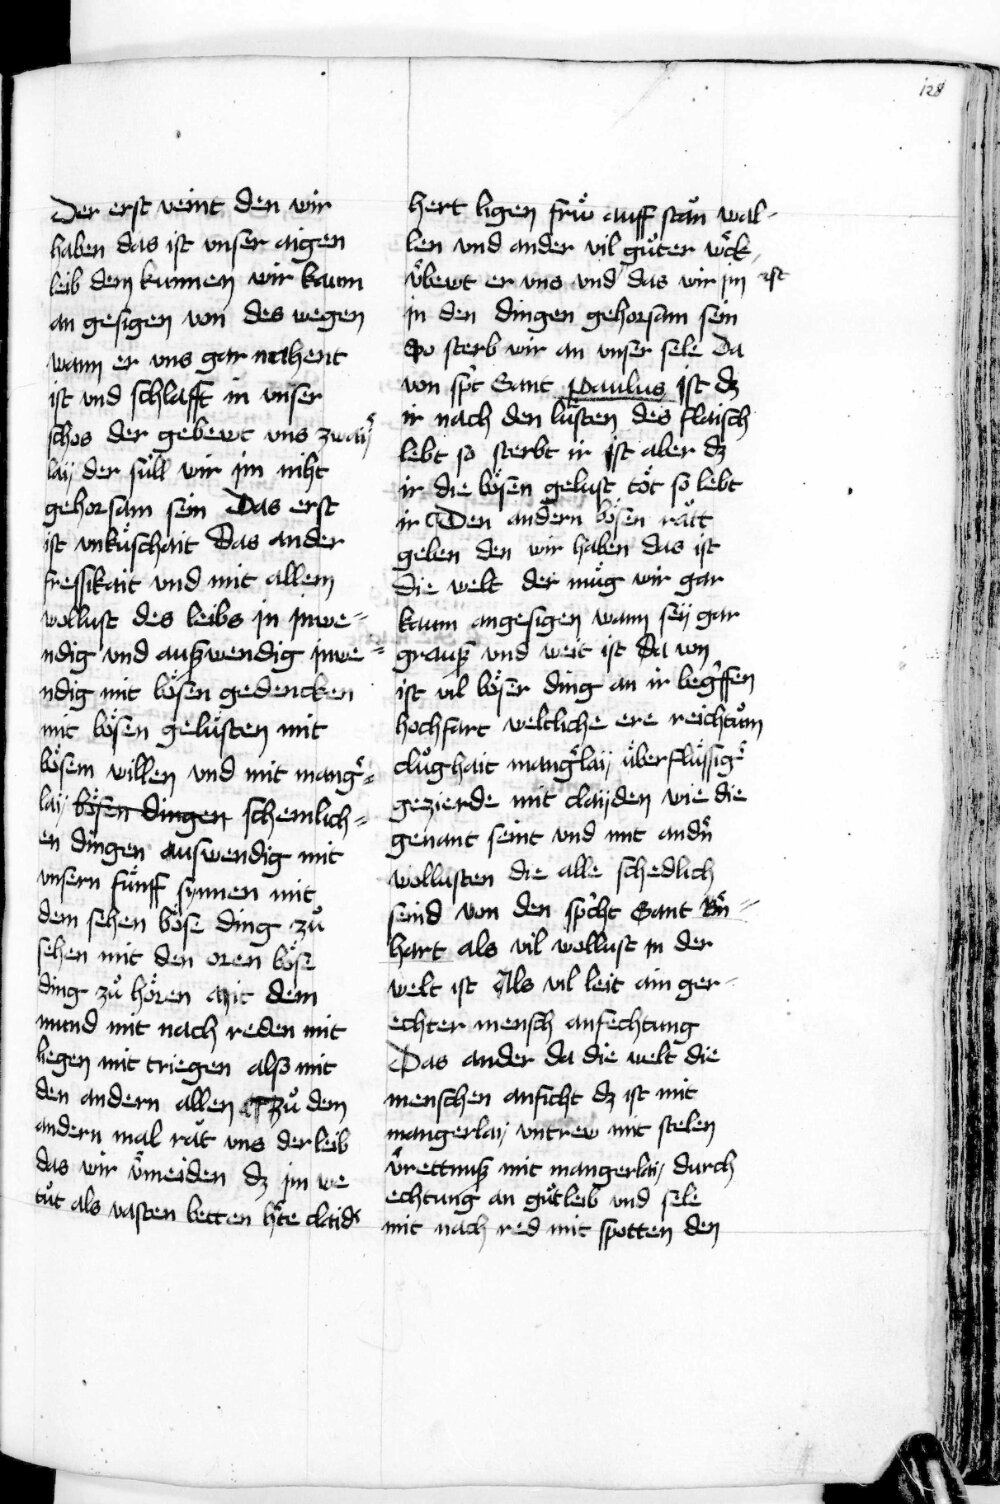 128
Der erst veint den wir
haben das ist vnser aigen
leib dem kunnen wir kaum
an gesigen von des wegen
wann er vns gar nahent
ist vnd schlafft in vnser
schos der gebewt vns zwaiͤ
laij der süll wir im niht
gehorsam sein Das erst
ist vnkuͤschait Das ander
fressikait vnd mit allem
wollust des leibs in jnwe-
ndig vnd außwendig jnwe-
ndig mit boͤsen gedencken
mit boͤsen geluͤsten mit
boͤsem willen vnd mit mangͤ-
laij boͤsen dingen schemlich-
en dingen auswendig mit
vnsern fuͤnff synnen mit
dem sehen boͤse ding zuͦ
sehen mit den oren boͤse
ding zuͦ hoͤren mit dem
mund mit nach reden mit
liegen mit triegen also mit
den andern allen zuͦ dem
andern mal raͤt vns der leib
das wir v̄meiden dz im we
tuͦt als vasten betten hͤte claidͤ
hert ligen fruͤ auff stan wal-
len vnd ander vil guͦter wͤck
v̄bewt er vns vnd das wir im ist
jn den dingen gehorsam sein
So sterb wir an vnser sele Da
von spͥt Sant Paulus ist dz
ir nach den lusten des flaisch
lebt so sterbt ir ist aber dz
ir die boͤsen gelust toͤt so lebt
ir Den andern boͤsen raͤtt
geben den wir haben das ist
die welt der muͤg wir gar
kaum angesigen wann seij gar
grauß vnd weit ist Da von
ist vil boͤser ding an ir begͥffen
hochfart weltliche ere reichtuͦm
cluͦghait mangͤlaij uͤberfluͤssigͤ
gezierde mit claijden wie die
genant seint vnd mit andͤn
wollusten die alle schedlich
seind von den spͥcht Sant Bͤn-
hart als vil wollust in der
welt ist Als vil leit ain ger-
echter mensch anfechtung
Das ander da die welt die
menschen anficht dz ist mit
mangerlaij vntrew mit stelen
v̄rettnuß mit mangerlaij durch
echtung an guͦt leib vnd sele
mit nach red mit spotten den